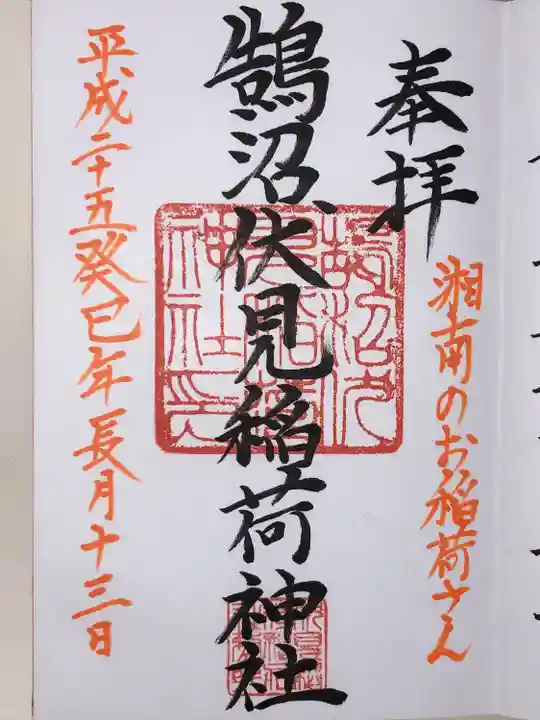 奉拝
湘南のお稲荷さん
鵠沼伏見稲荷神社
平成二十五癸巳年長月十三日